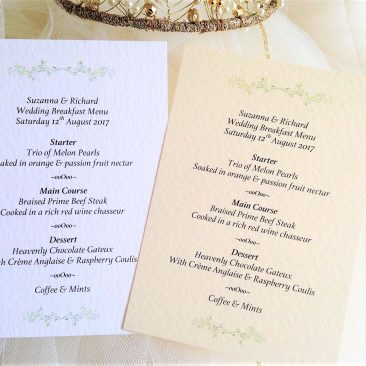 Suzanna & Richard
Wedding Breakfast Menu
Saturday 12th August 2017
Starter
Trio of Melon Pearls
oaked in orange & passion fruit nectar
~ooOoo~
Main Course
Braised Prime Beef Steak
Cooked in a rich red wine chasseur
~ooOoo~
Dessert
Heavenly Chocolate Gateux
With Crème Anglaise & Raspberry Coulis
~ooOoo~
Coffee & Mints
Suzanna & Richard
Wedding Breakfast Menu
Saturday 12th August 2017
Starter
Trio of Melon Pearls
Soaked in orange & passion fruit nectar
~ooOoo~
Main Course
Braised Prime Beef Steak
Cooked in a rich red wine chasseur
~ooOoo~
Dessert
Heavenly Chocolate Gateux
With Crème Anglaise & Raspberry Coulis
~ooOoo~
Coffee & Mints